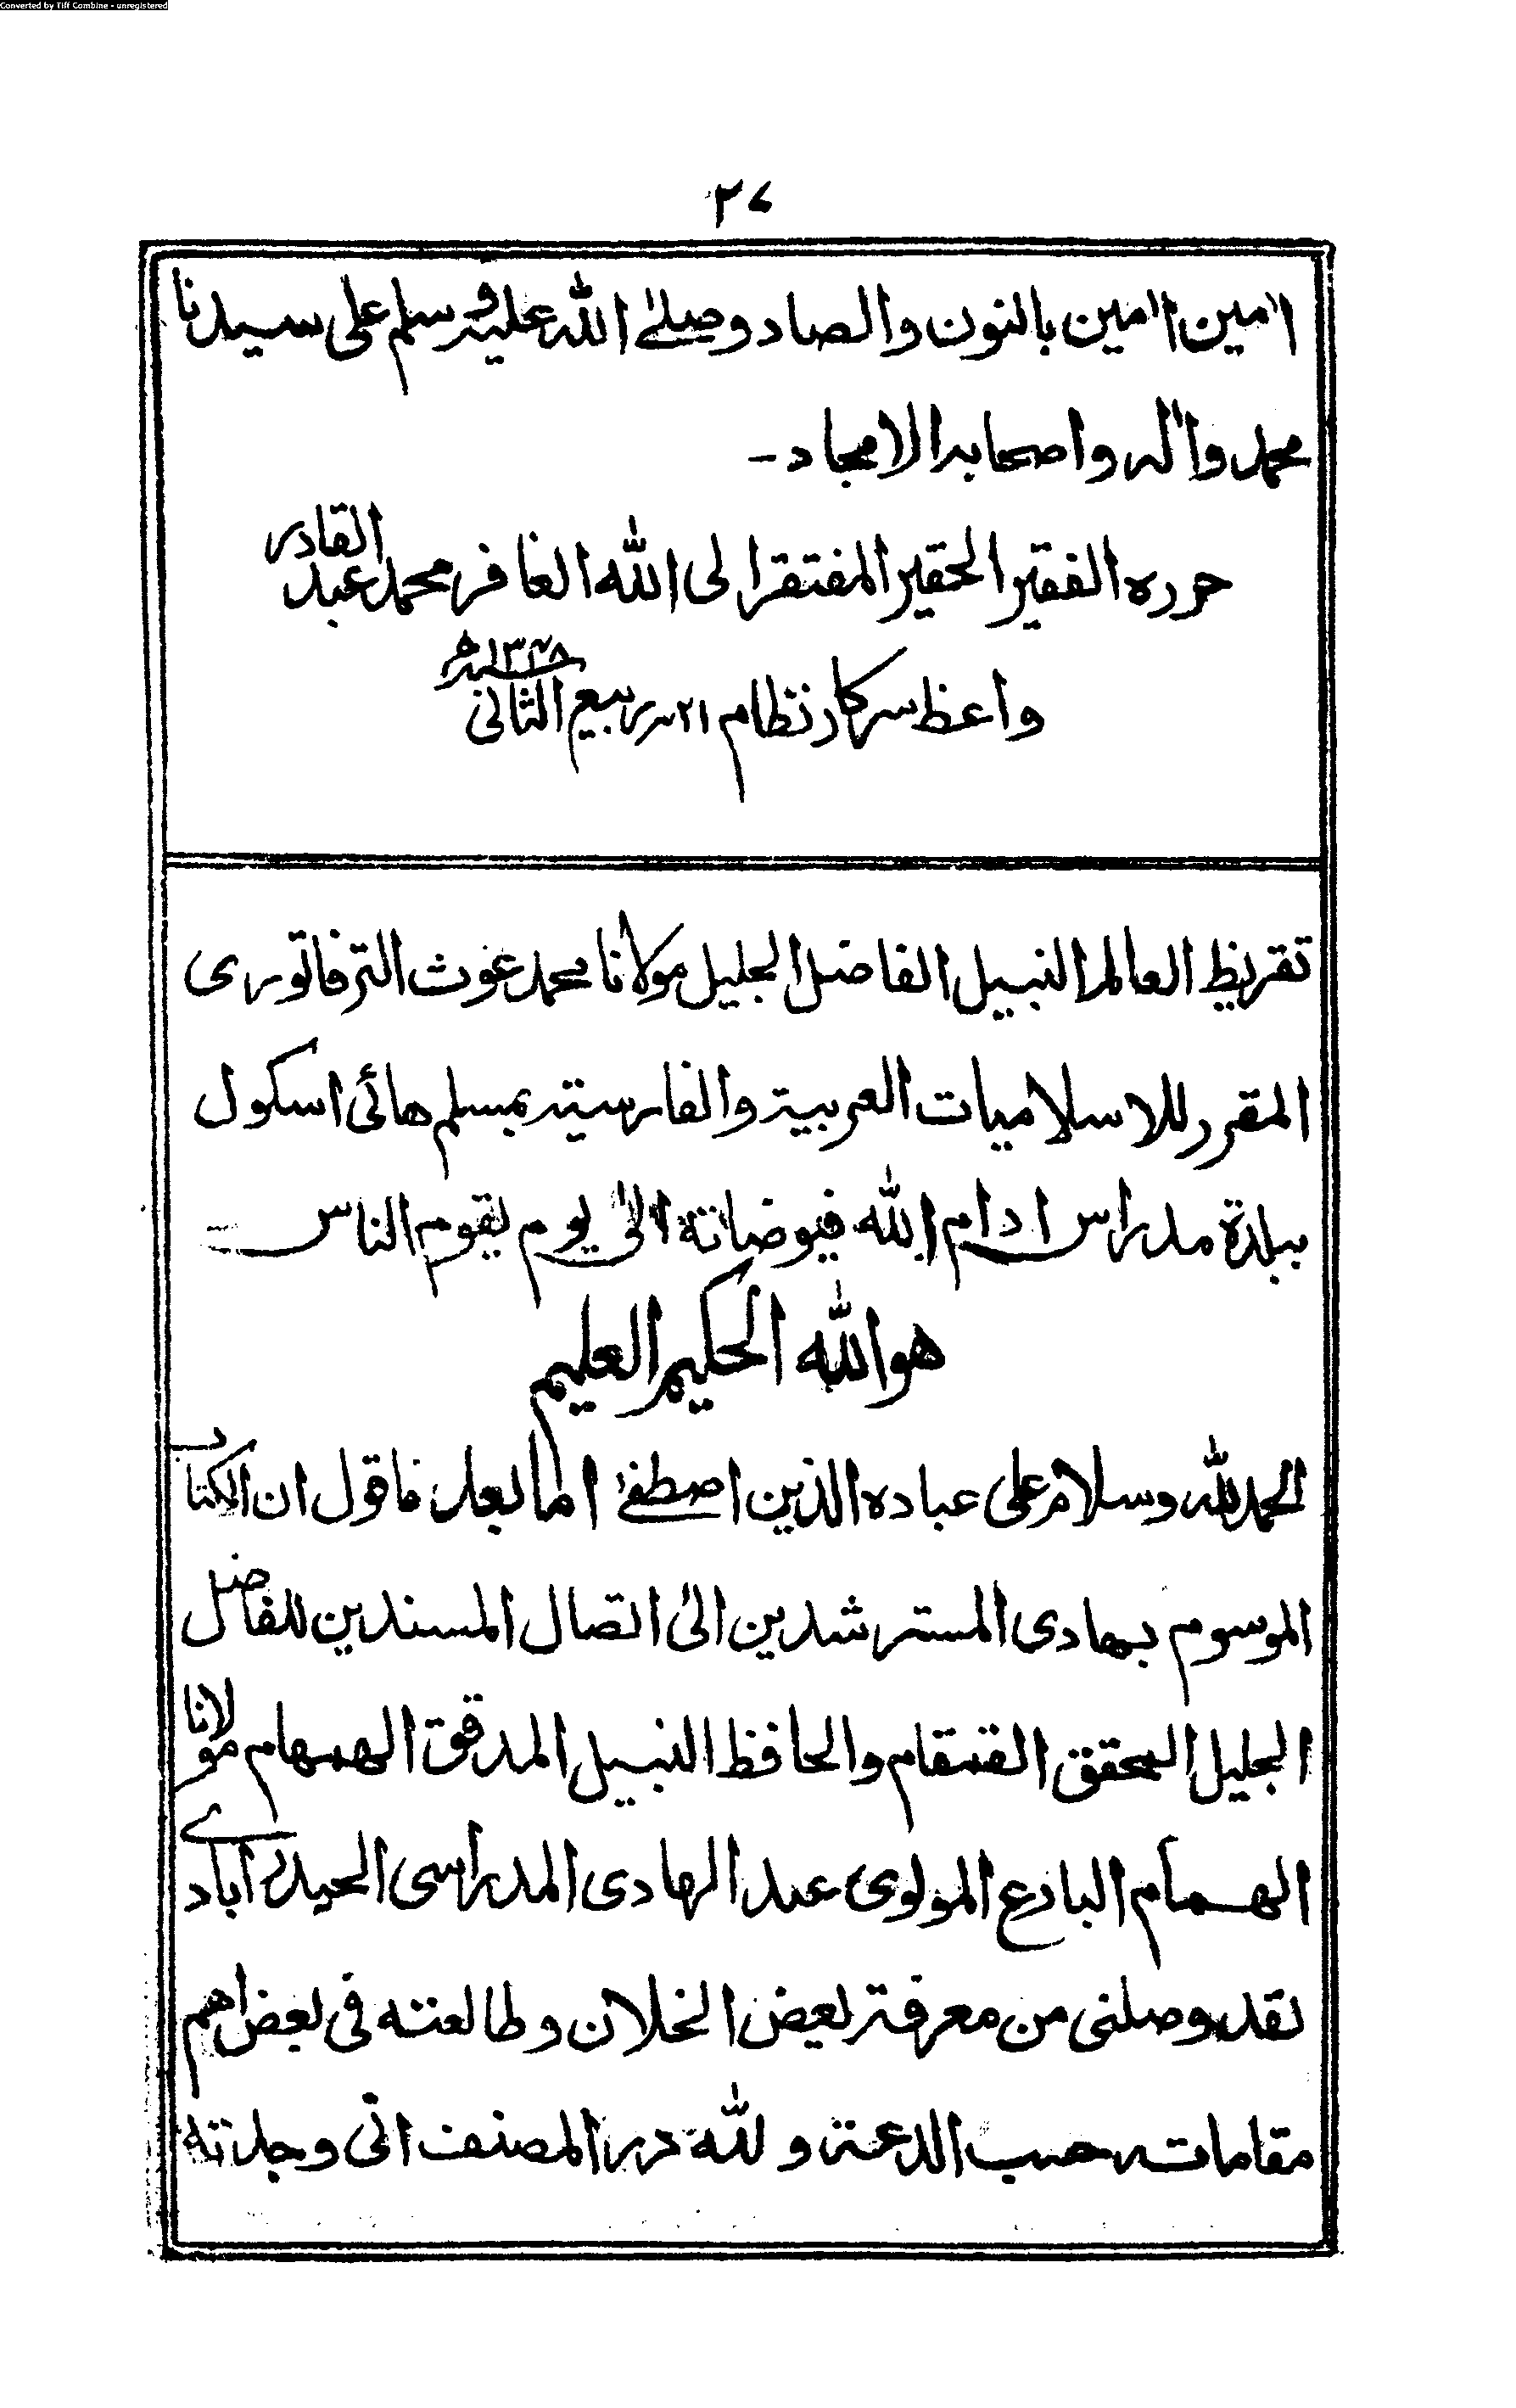 Converted by Tiff Combine - unregistered
٣٧
اٰمين اٰمين بالنون والصاد وصلے الله عليه وسلم على سيدنا
محمد واٰله واصحابه الامجاد -
حرره الفقير الحقير المفتقر الى الله الغافر محمد عبد القادر
واعظ سركار نظام ٢١ ربيع الثانى ١٣٤٨ه
تقريظ العالم النبيل الفاضل الجليل مولانا محمد غوث الترفاتورى
المقرر للاسلاميات العربية والفارسية بمسلم هائى اسكول
ببلدة مدراس ادام الله فيوضاته الىٰ يوم يقوم الناس
هو الله الحكيم العليم
الحمد لله وسلام على عباده الذين اصطفے اما بعد فاقول ان الكتاب
الموسوم بهادى المسترشدين الىٰ اتصال المسندين للفاضل
الجليل المحقق القمقام والحافظ النبيل المدقق الهمهام مولانا
الهمام البارع المولوى عبد الهادى المدراسى الحيدراٰبادے
لقد وصلنى من معرفة بعض الخلان وطالعته فى بعض اهم
مقاماته حسب الدعة ولله در المصنف انى وجدته